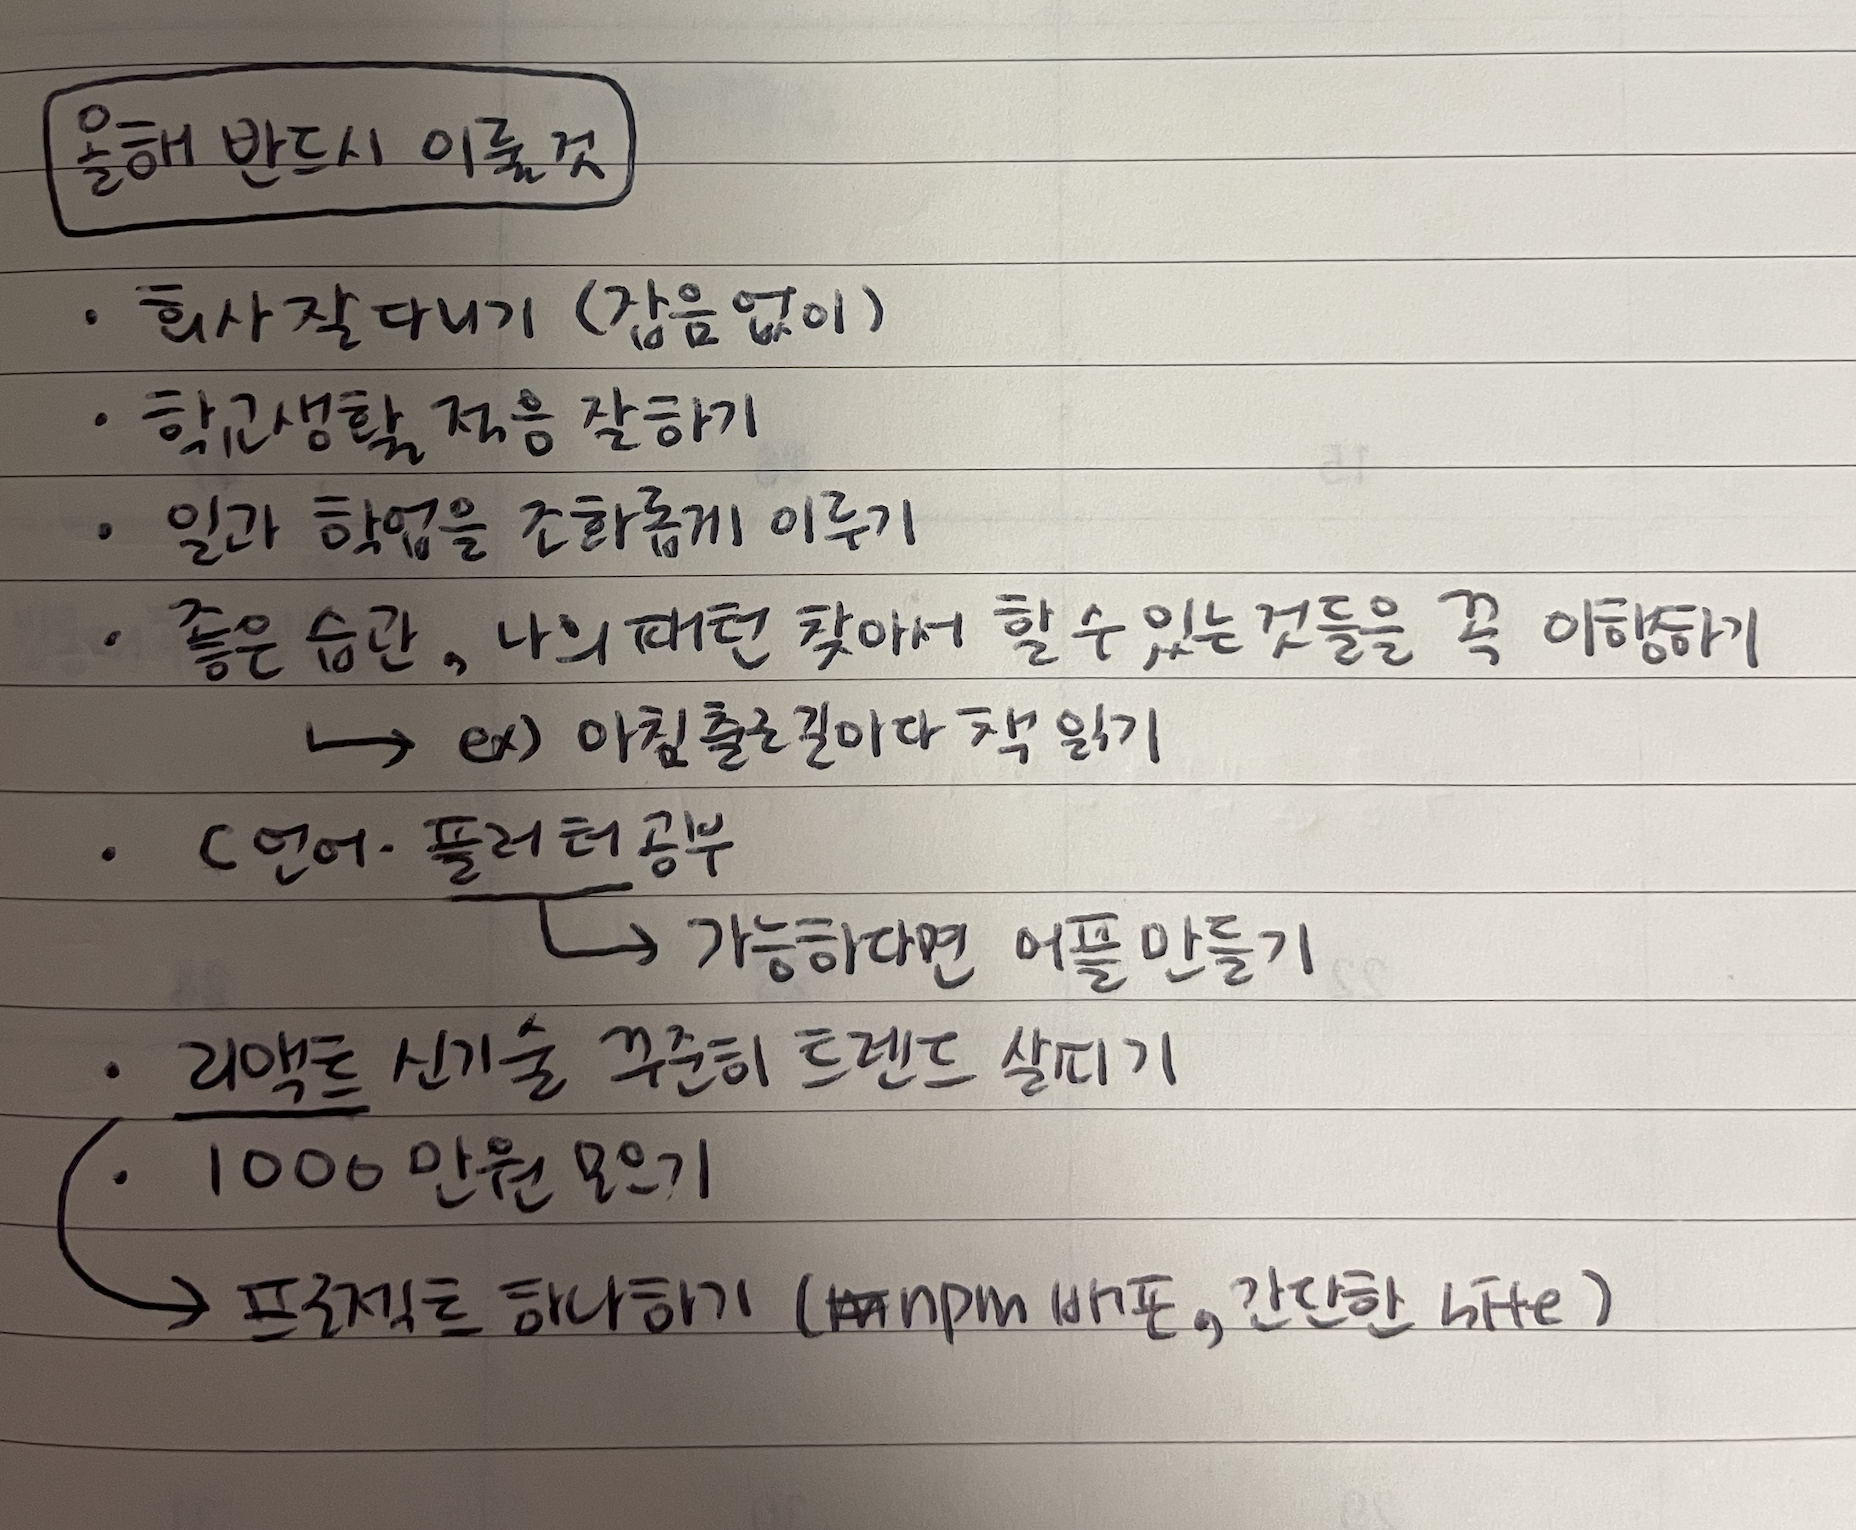 올해 반드시 이룰것
· 회사 잘 다니기 (잡음 없이)
· 학교생활 적응 잘하기
· 일과 학업을 조화롭게 이루기
· 좋은 습관, 나의 패턴 찾아서 할 수 있는 것들을 꼭 이행하기
↳ ex) 아침 출근길마다 책 읽기
· C언어·플러터 공부
↳ 가능하다면 어플 만들기
· 리액트 신기술 꾸준히 트렌드 살피기
· 1000만원 모으기
→ 프로젝트 하나하기 (npm 배포, 간단한 site)